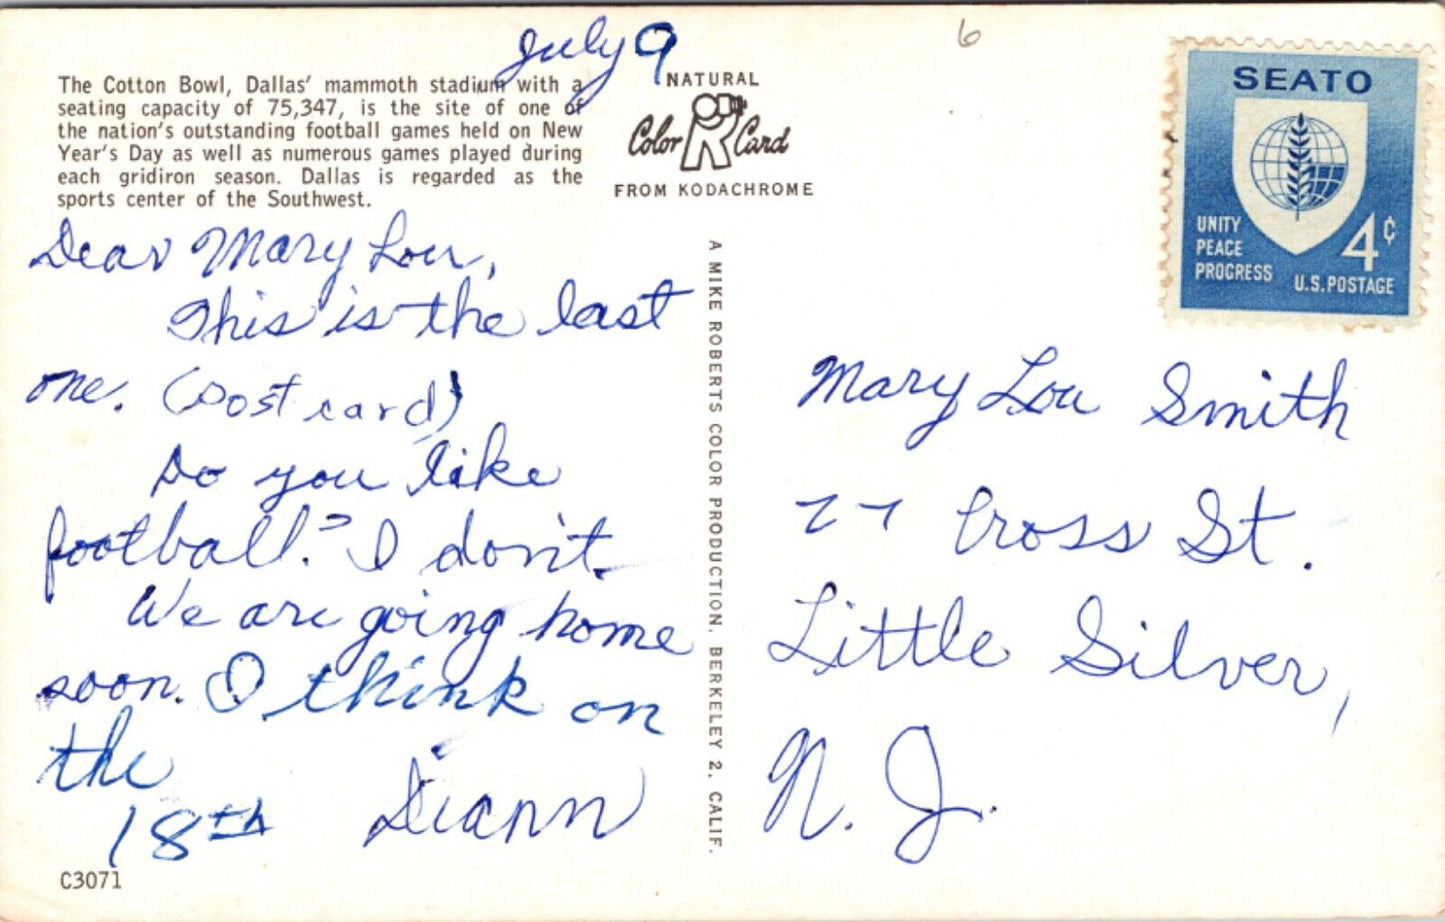 July 9
6
The Cotton Bowl, Dallas' mammoth stadium with a
seating capacity of 75,347, is the site of one of
the nation's outstanding football games held on New
Year's Day as well as numerous games played during
each gridiron season. Dallas is regarded as the
sports center of the Southwest.
NATURAL
Color Card
FROM KODACHROME
SEATO
UNITY
PEACE
PROGRESS
4¢
U.S. POSTAGE
Dear Mary Lou,
This is the last
one. (Post card)
Do you like
football? I don't.
We are going home
soon. I think on
the
18th
Diann
C3071
A MIKE ROBERTS COLOR PRODUCTION, BERKELEY 2, CALIF.
Mary Lou Smith
77 Cross St.
Little Silver,
N. J.